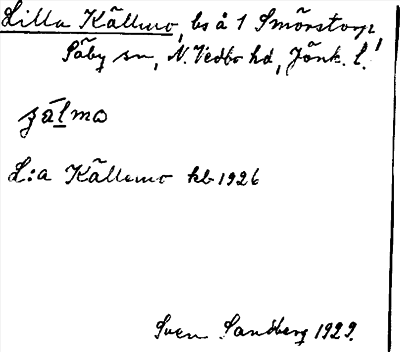 Lilla Källemo, bs å 1 Smörstorp,
Säby sn, N. Vedbo hd, Jönk. l.
L:a Källemo kb 1926
Sven Sandberg 1929.